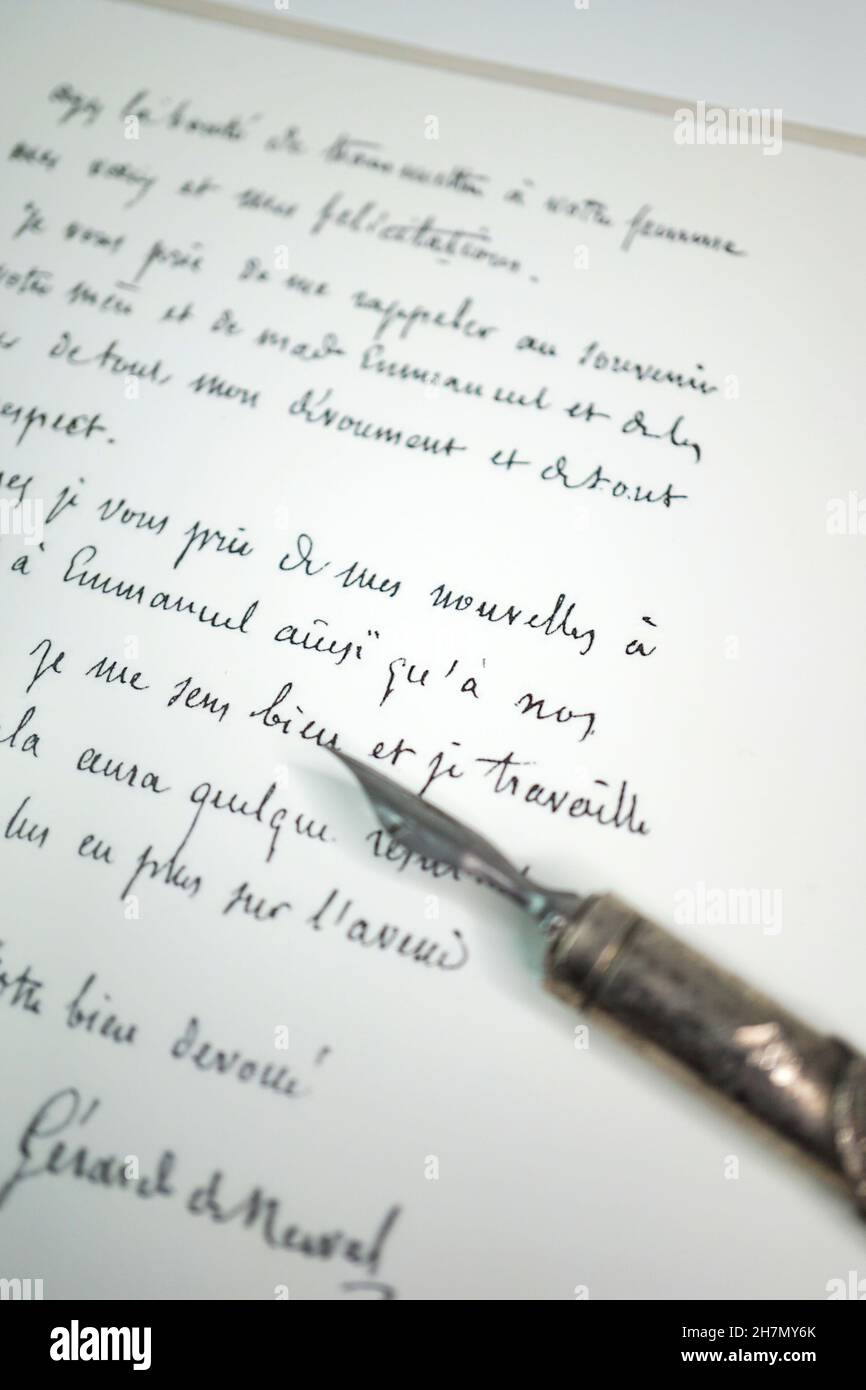 ayez la bonté de transmettre à votre femme
mes vœux et mes félicitations.
Je vous prie de me rappeler au souvenir
votre mère et de mad Emmanuel et de les
de tout mon dévoument et de tout
espect.
je vous prie de mes nouvelles à
à Emmanuel ainsi qu'à nos
je me sens bien et je travaille
la aura quelque
lus en plus sur l'avenir
otre bien dévoué
Gérard de Nerval
alamy
Image ID: 2H7MY6K
www.alamy.com